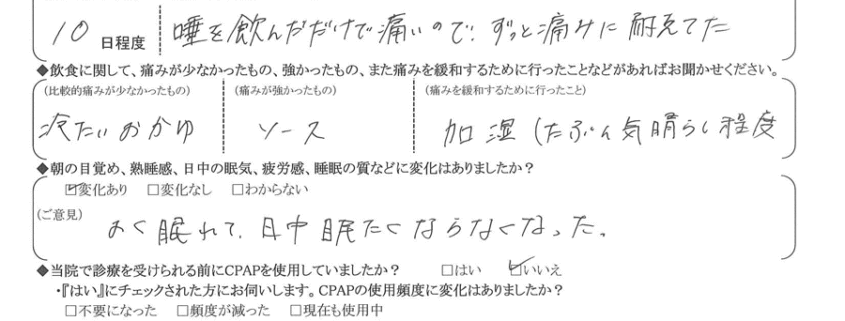 10 日程度 唾を飲んだだけで痛いので、ずっと痛みに耐えてた
◆飲食に関して、痛みが少なかったもの、強かったもの、また痛みを緩和するために行ったことなどがあればお聞かせください。
(比較的痛みが少なかったもの) (痛みが強かったもの) (痛みを緩和するために行ったこと)
冷たいおかゆ ソース 加湿(たぶん気晴らし程度
◆朝の目覚め、熟睡感、日中の眠気、疲労感、睡眠の質などに変化はありましたか?
☑変化あり □変化なし □わからない
(ご意見)
よく眠れて、日中眠たくならなくなった。
◆当院で診療を受けられる前にCPAPを使用していましたか? □はい ☑いいえ
・『はい』にチェックされた方にお伺いします。CPAPの使用頻度に変化はありましたか?
□不要になった □頻度が減った □現在も使用中